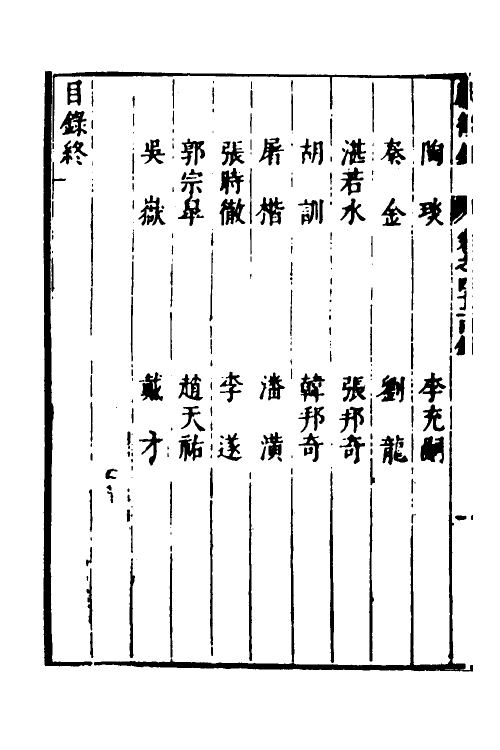 陶琰　李充嗣
秦金　劉龍
湛若水　張邦奇
胡訓　韓邦奇
屠楷　潘潢
張時徹　李遂
郭宗皐　趙天祐
吳嶽　戴才
目錄終